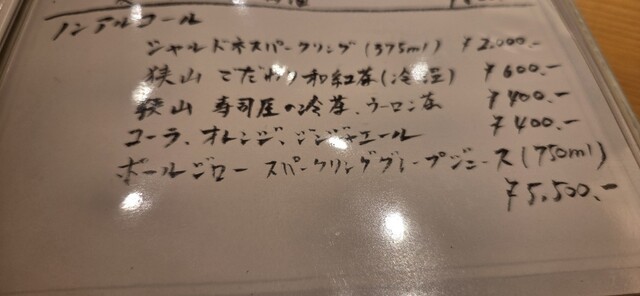 ノンアルコール
シャルドネスパークリング(375ml) ¥2,000.-
狭山 こだわり和紅茶(冷・温) ¥600.-
狭山 寿司屋の冷茶、ウーロン茶 ¥400.-
コーラ、オレンジ、ジンジャエール ¥400.-
ポールジロー スパークリンググレープジュース(750ml)
¥5,500.-